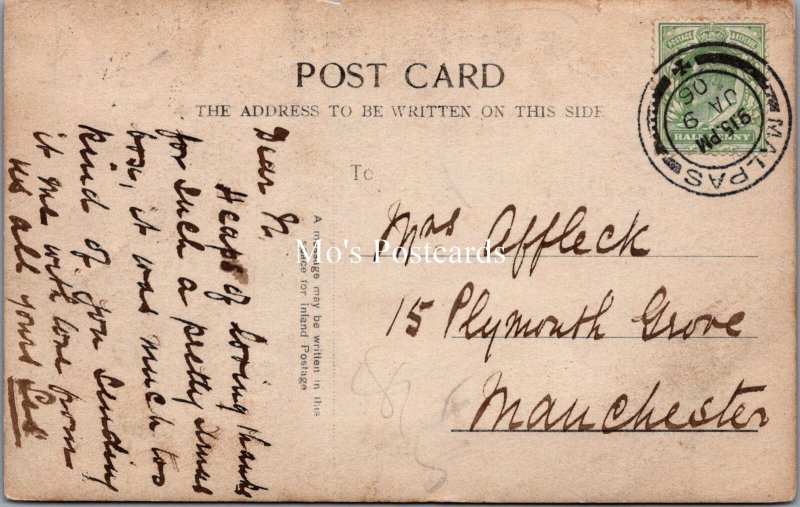 POST CARD
THE ADDRESS TO BE WRITTEN ON THIS SIDE
POSTAGE & REVENUE
HALFPENNY
MALPAS
9.15 PM
JA 9
06
To
Mrs Affleck
15 Plymouth Grove
Manchester
A message may be written in this
space for Inland Postage
Mo's Postcards
Dear
Heaps of loving thanks
for such a pretty Xmas
box, it was much too
kind of you sending
it me with love from
us all yours
8